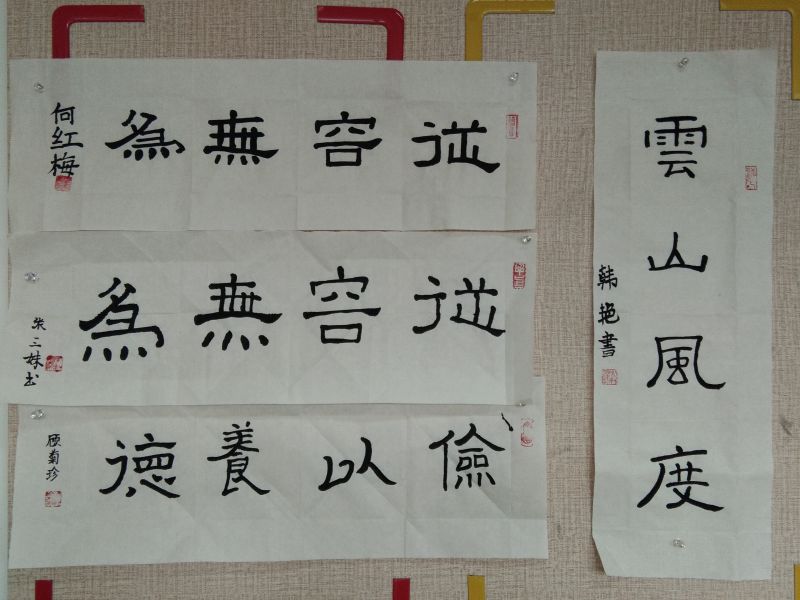 從容無為
何红梅
從容無為
朱三妹书
儉以養德
顾菊珍
雲山風度
韩艳書